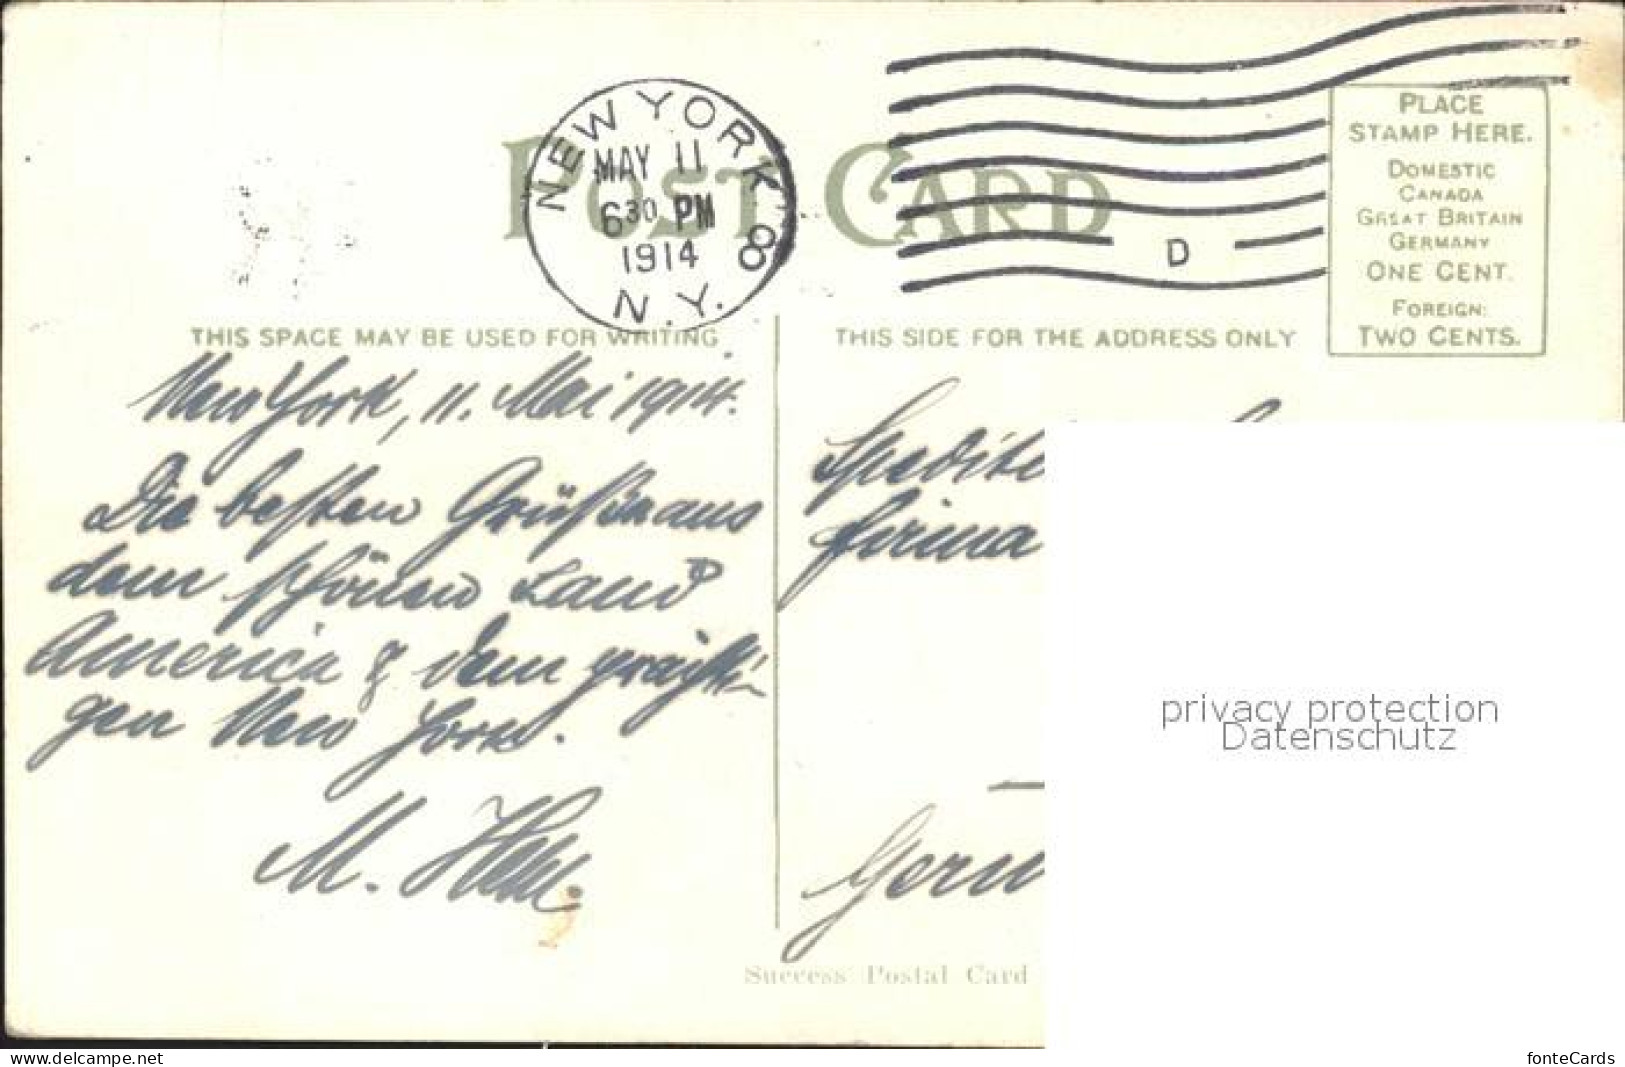 NEW YORK 8
MAY 11
6 30 PM
1914
N.Y.
D
POST CARD
PLACE
STAMP HERE.
DOMESTIC
CANADA
GREAT BRITAIN
GERMANY
ONE CENT.
FOREIGN:
TWO CENTS.
THIS SPACE MAY BE USED FOR WRITING
THIS SIDE FOR THE ADDRESS ONLY
New York, 11. Mai 1914.
Die besten Grüße aus
dem schönen Land
America & dem prächti-
gen New York.
M.
Spedite
Firma
Germ
Success Postal Card
privacy protection
Datenschutz
www.delcampe.net
fonteCards